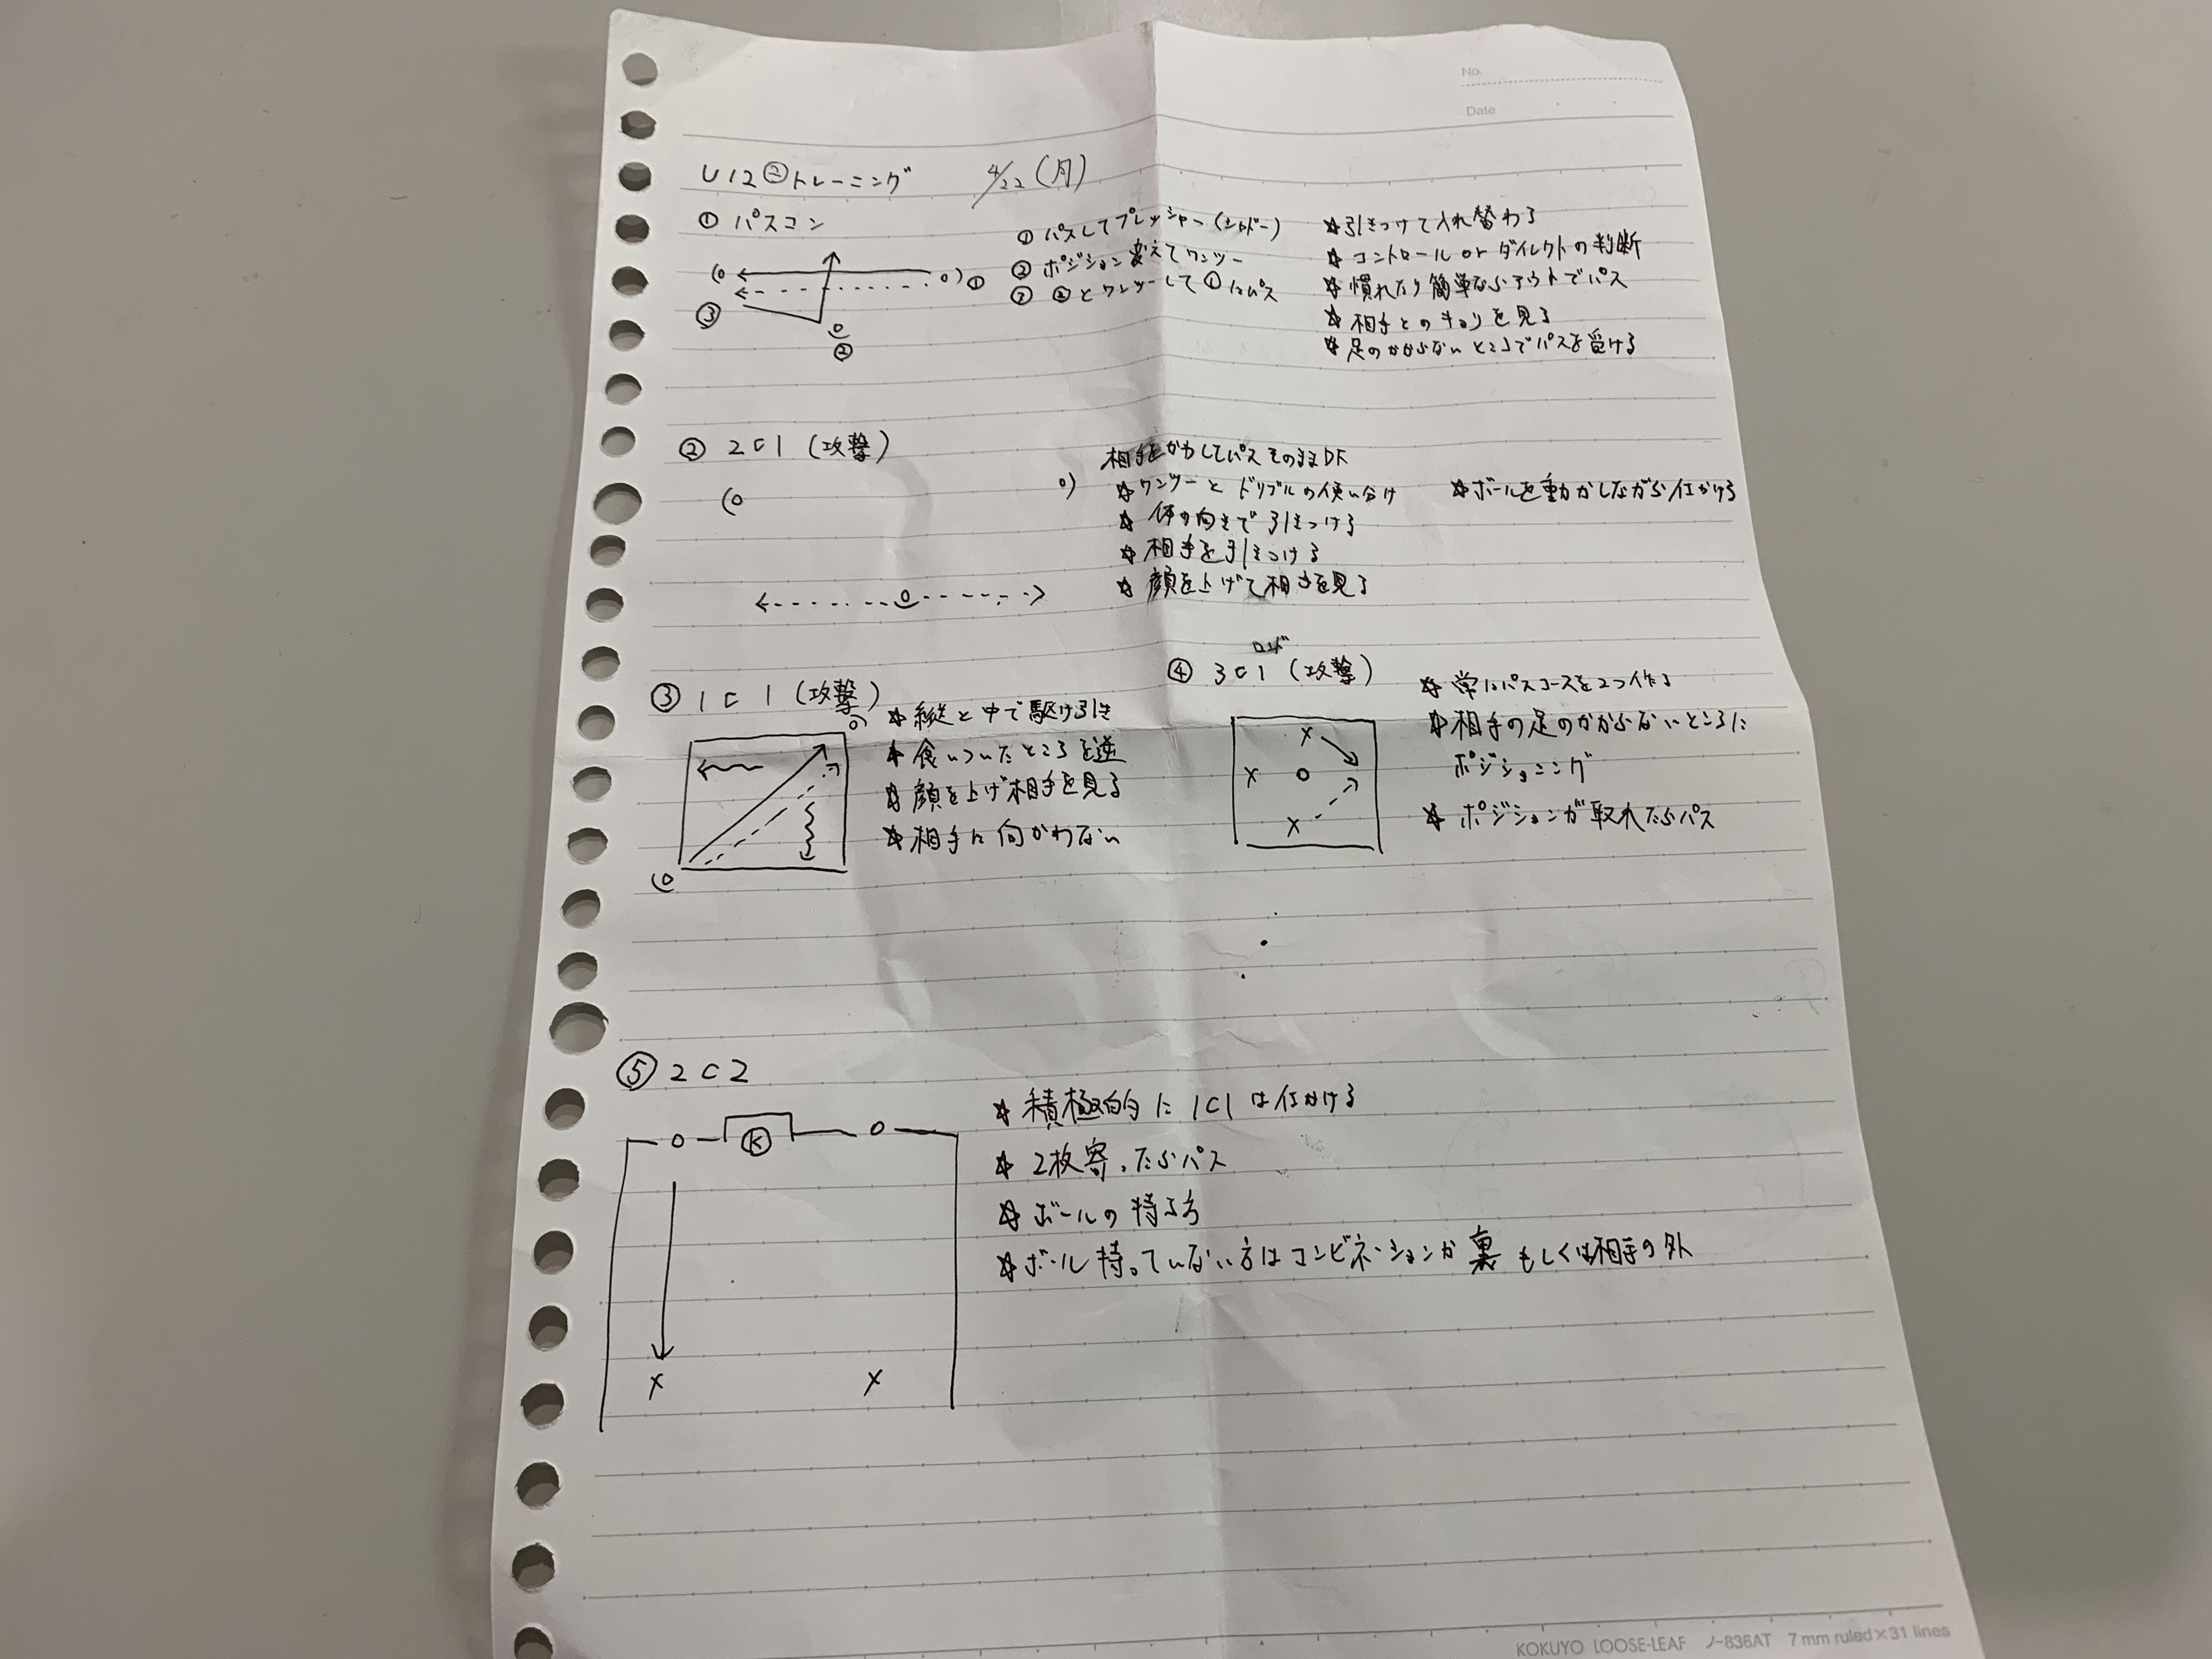 No.
Date
U12②トレーニング 4/22(月)
① パスコン
① パスしてプレッシャー(シャドー)
② ポジション変えてワンツー
③ ②とワンツーして①にパス
☆引きつけて入れ替わる
☆コントロール or ダイレクトの判断
☆慣れたら簡単ならアウトでパス
☆相手とのキョリを見る
☆足のかからないところでパスを受ける
①
③
②
② 2C1(攻撃)
相手をかわしてパスそのままDF
☆ワンツーとドリブルの使い分け
☆体の向きで引きつける
☆相手を引きつける
☆顔を上げて相手を見る
☆ボールを動かしながら仕かける
③ 1C1(攻撃)
☆縦と中で駆け引き
☆食いついたところを逆
☆顔を上げ相手を見る
☆相手に向かわない
ロンド
④ 3C1(攻撃)
☆常にパスコースを2つ作る
☆相手の足のかからないところに
ポジショニング
☆ポジションが取れたらパス
⑤ 2C2
K
☆積極的に1C1は仕かける
☆2枚寄ったらパス
☆ボールの持ち方
☆ボール持っていない方はコンビネーションか裏もしくは相手の外
KOKUYO LOOSE-LEAF ノ-836AT 7mm ruled×31 lines